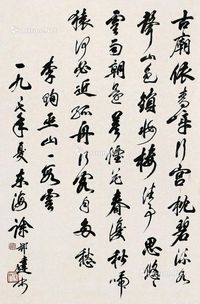 古廟依青嶂行宮枕碧流水
聲山色鎖妝樓往事思悠悠
雲雨朝還暮煙花春復秋啼
猿何必近孤舟行客自多愁
李珣巫山一段雲
一九七年夏东海徐邦達書